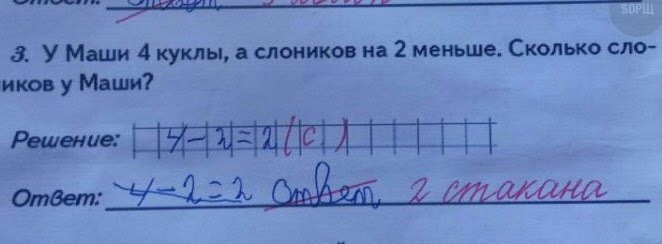 БОРЩ
Ответ:
3. У Маши 4 куклы, а слоников на 2 меньше. Сколько сло-
иков у Маши?
Решение: 4-2=2(с)
Ответ: 4-2=2 ответ 2 стакана